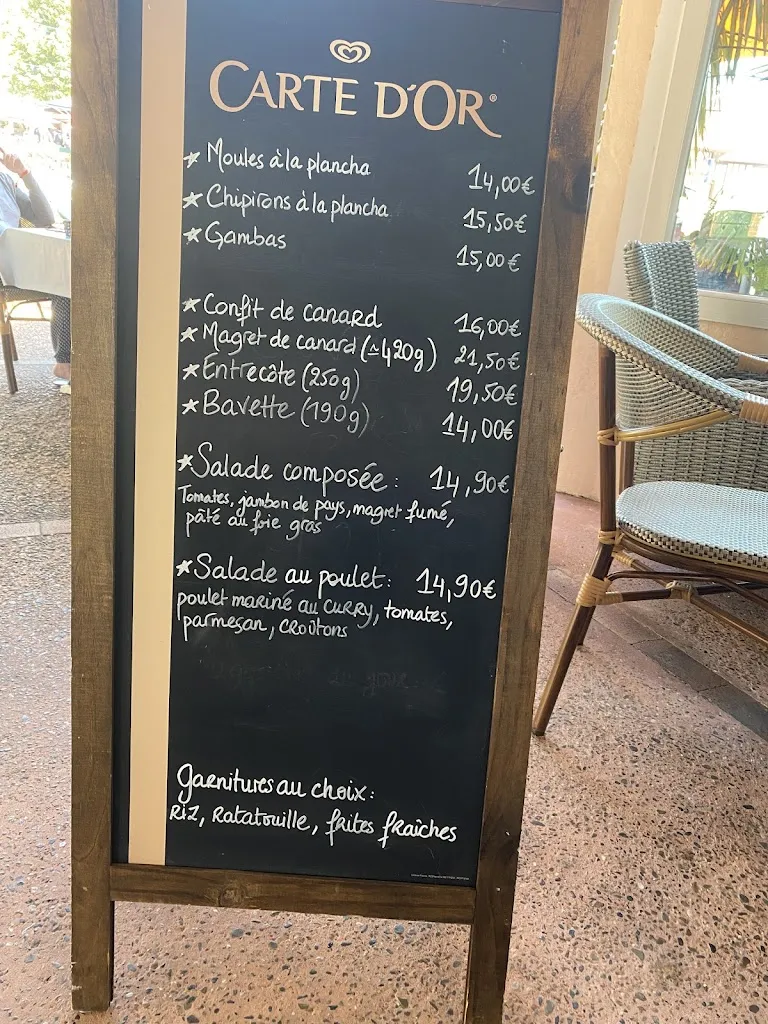 CARTE D'OR®
★ Moules à la plancha 14,00€
★ Chipirons à la plancha 15,50€
★ Gambas 15,00€
★ Confit de canard 16,00€
★ Magret de canard (≃420g) 21,50€
★ Entrecôte (250g) 19,50€
★ Bavette (190g) 14,00€
★ Salade composée : 14,90€
Tomates, jambon de pays, magret fumé,
pâté au foie gras
★ Salade au poulet : 14,90€
poulet mariné au curry, tomates,
parmesan, croûtons
Garnitures au choix :
Riz, Ratatouille, frites fraîches